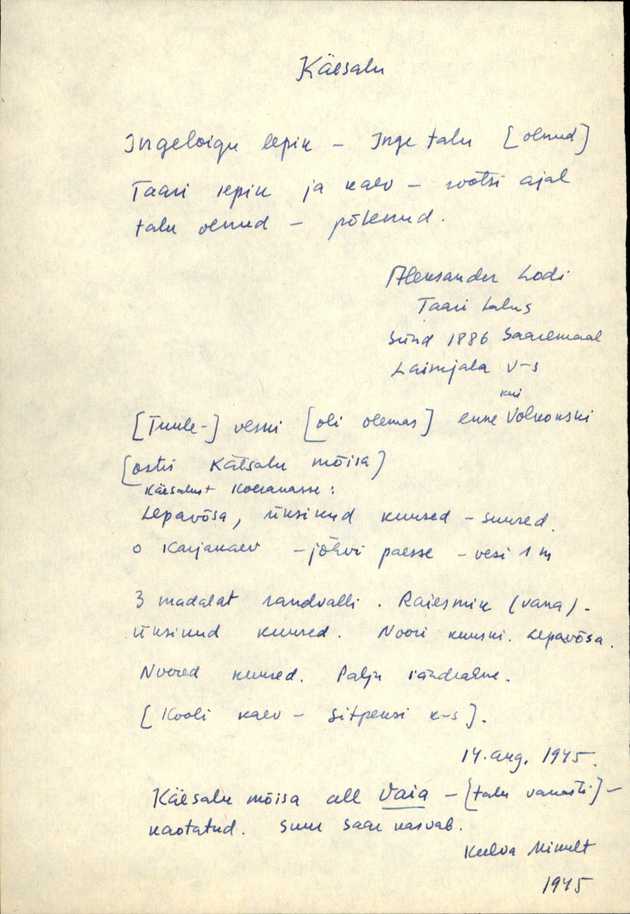 Käesalu
Ingeloigu lepik – Inge talu [olnud]
Taari lepik ja kaev – rootsi ajal
talu olnud – põlenud.
Aleksander Lodi
Taari talus
Sünd 1886 Saaremaal
Laimjala v-s
[Tuule-] veski [oli olemas] enne kui Volkonski
[ostis Käesalu mõisa]
Käesalust :
Lepavõsa, üksikud kuused – suured.
o Karjakaev – jõhvi paesse – vesi 1 m
3 madalat randvalli. Raiesmik (vana).
üksikud kuused. Noori kuuski. Lepavõsa.
Noored kuused. Palju
[Kooli kaev – Sitpensi k-s].
14. aug. 1945.
Käesalu mõisa all Vaia – [talu vanasti] –
kaotatud. Suur Saar kasvab.
1945